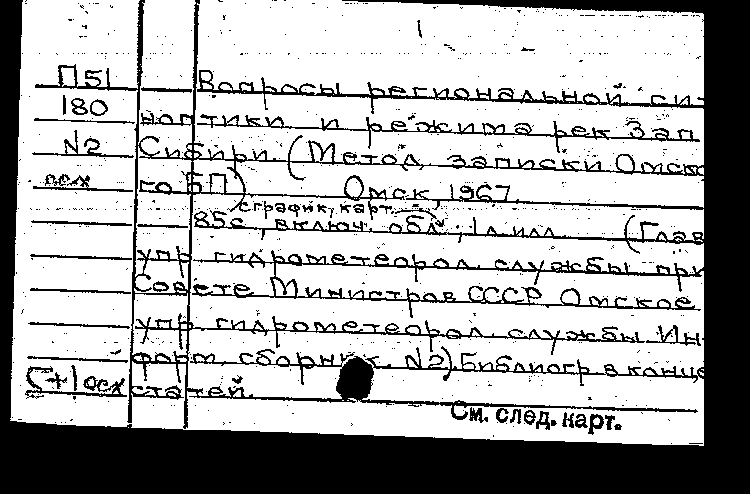 1
П51 Вопросы региональной си-
180 ноптики и режима рек Зап.
N2 Сибири. (Метод. записки Омско
осх го БП) Омск, 1967.
с график, карт.
85с., включ. обл.; 1 л. илл. (Глав.
упр. гидрометеорол. службы при
Совете Министров СССР. Омское
упр. гидрометеорол. службы. Ин-
форм. сборник. N2). Библиогр. в конце
5+1 осх статей.
См. след. карт.